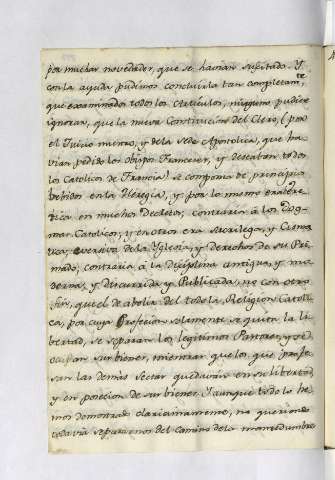 por muchas novedades, que se havian suscitado. Y
con la ayuda pudimos concluirla tan completam.te
que examinados todos los Articulos, ninguno pudiese
ignorar, que la nueva Constitucion del Clero, (por
el Juicio nuestro, y de la Sede Apostolica, que ha-
vian pedido los Obispos Franceses, y deseaban todos
los Catolicos de Francia) se componia de principios
bebidos en la Heregia, y por lo mismo era here-
tica en muchos Decretos, contraria à los Dog-
mas Catolicos; y en otros era sacrilega, y Cisma-
tica, eversiva de la Yglesia, y derechos de su Pri-
mado, contraria à la disciplina antigua, y mo-
derna, y discurrida, y Publicada, no con otro
fin, que el de abolir del todo la Religion Catoli-
ca, por cuya Profesion solamente se quita la li-
bertad, se separan los legitimos Pastores, y se
ocupan sus bienes, mientras que los que profe-
san las demàs sectas quedavan en su libertad,
y en posecion de sus bienes. Y aunque todo lo he-
mos demostrado clarisimamente, no queriendo
todavia separarnos del camino de la mansedumbre